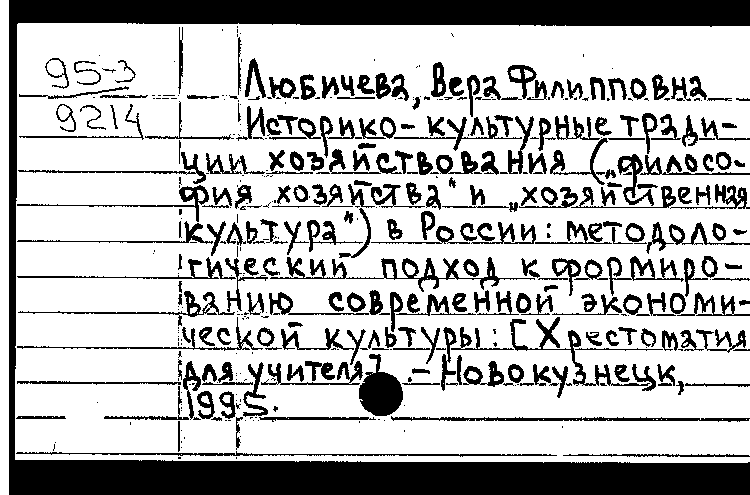 95-3
9214
Любичева, Вера Филипповна
Историко-культурные тради-
ции хозяйствования („филосо-
фия хозяйства" и „хозяйственная
культура") в России: методоло-
гический подход к формиро-
ванию современной экономи-
ческой культуры: [Хрестоматия
для учителя] .- Новокузнецк,
1995.